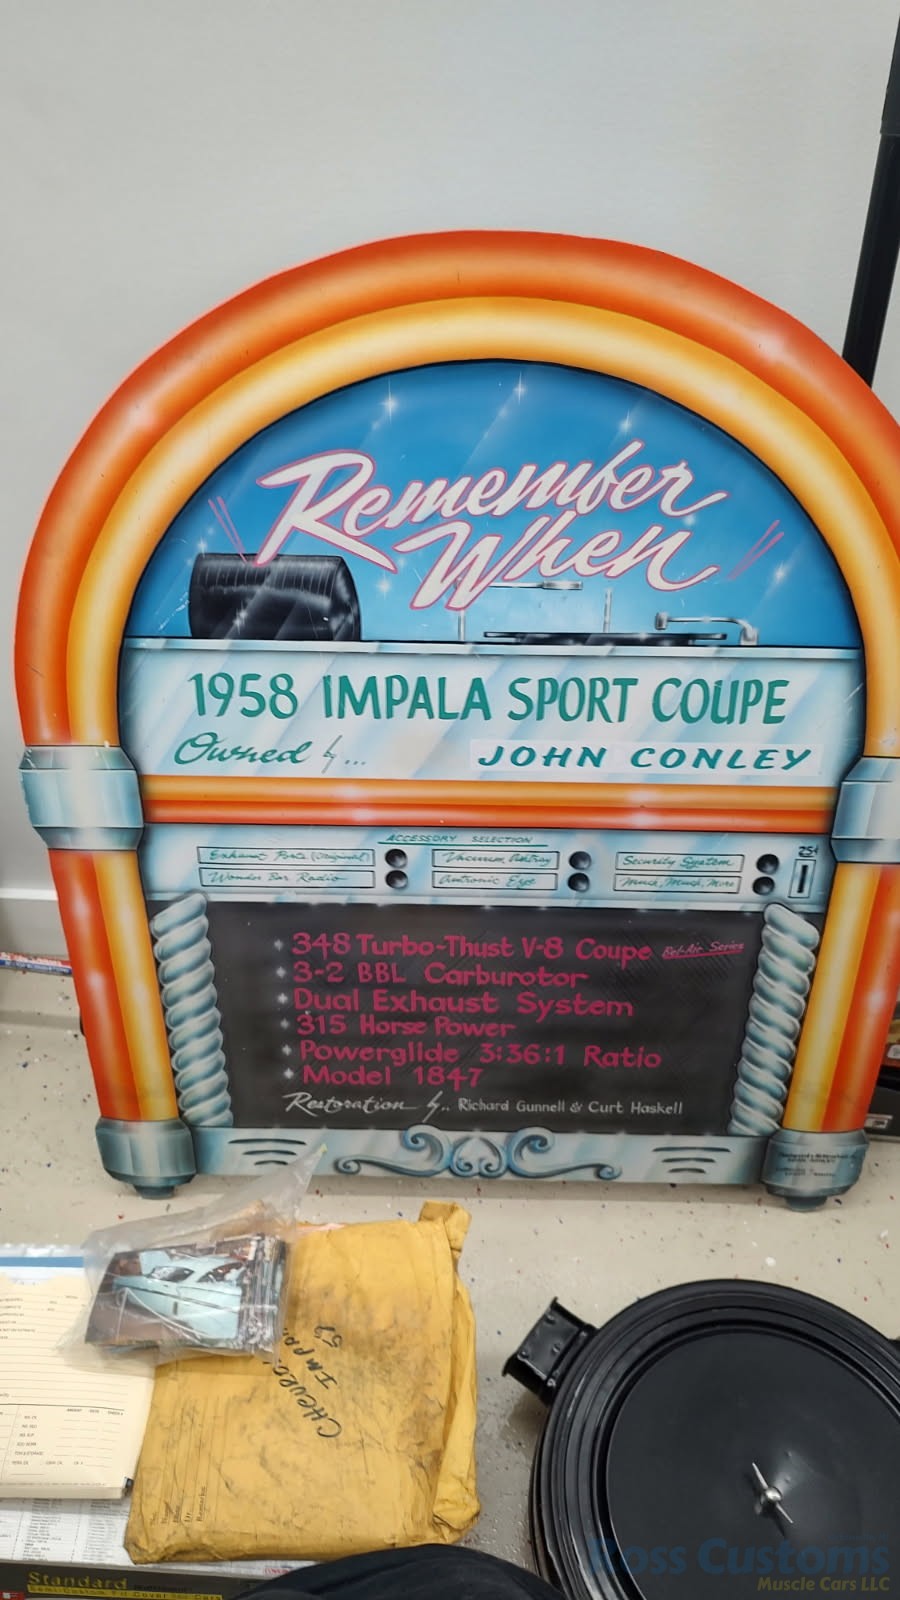 Remember
When
1958 IMPALA SPORT COUPE
Owned by... JOHN CONLEY
ACCESSORY SELECTION
Exhaust Ports (Original) Vacuum Ashtray Security System 25¢
Wonder Bar Radio Autronic Eye Much, Much, More
348 Turbo-Thust V-8 Coupe Bel-Air Series
3-2 BBL Carburotor
Dual Exhaust System
315 Horse Power
Powerglide 3:36:1 Ratio
Model 1847
Restoration by.. Richard Gunnell & Curt Haskell
CHEVROL
IMPA
58
Name
Remarks
Standard
Ross Customs
Muscle Cars LLC